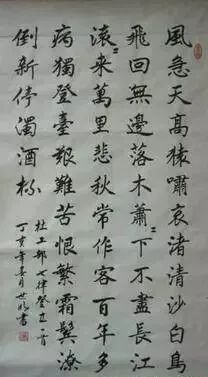 風急天高猿嘯哀渚清沙白鳥
飛回無邊落木蕭〻下不盡長江
滾〻來萬里悲秋常作客百年多
病獨登臺艱難苦恨繁霜鬢潦
倒新停濁酒杯
杜工部七律登高一首
丁亥年月世書